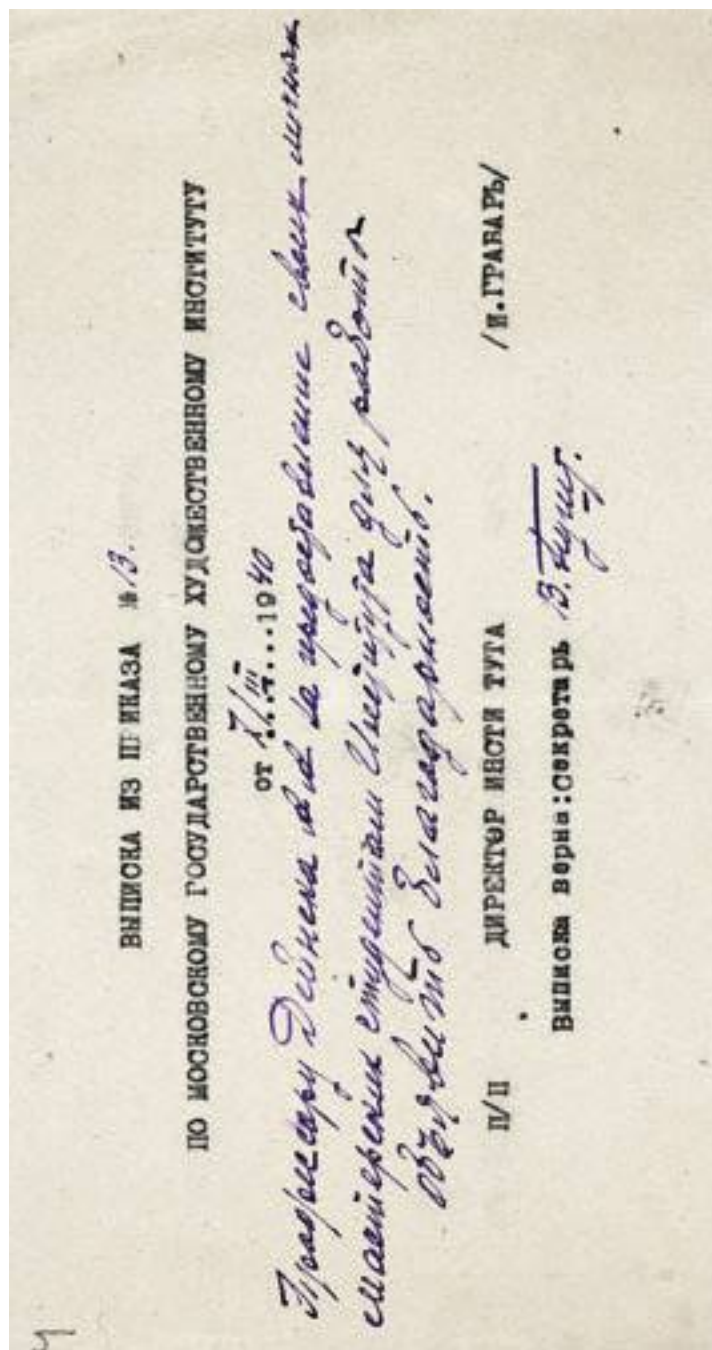 ВЫПИСКА ИЗ ПРИКАЗА № 13.
ПО МОСКОВСКОМУ ГОСУДАРСТВЕННОМУ ХУДОЖЕСТВЕННОМУ ИНСТИТУТУ
от 7/III...1940
Профессору Дейнека А А за предоставление своих личных
мастерских студентам Института для работы
объявить благодарность.
П/П ДИРЕКТОР ИНСТИТУТА /И.ГРАБАРЬ/
Выписка верна: секретарь В.